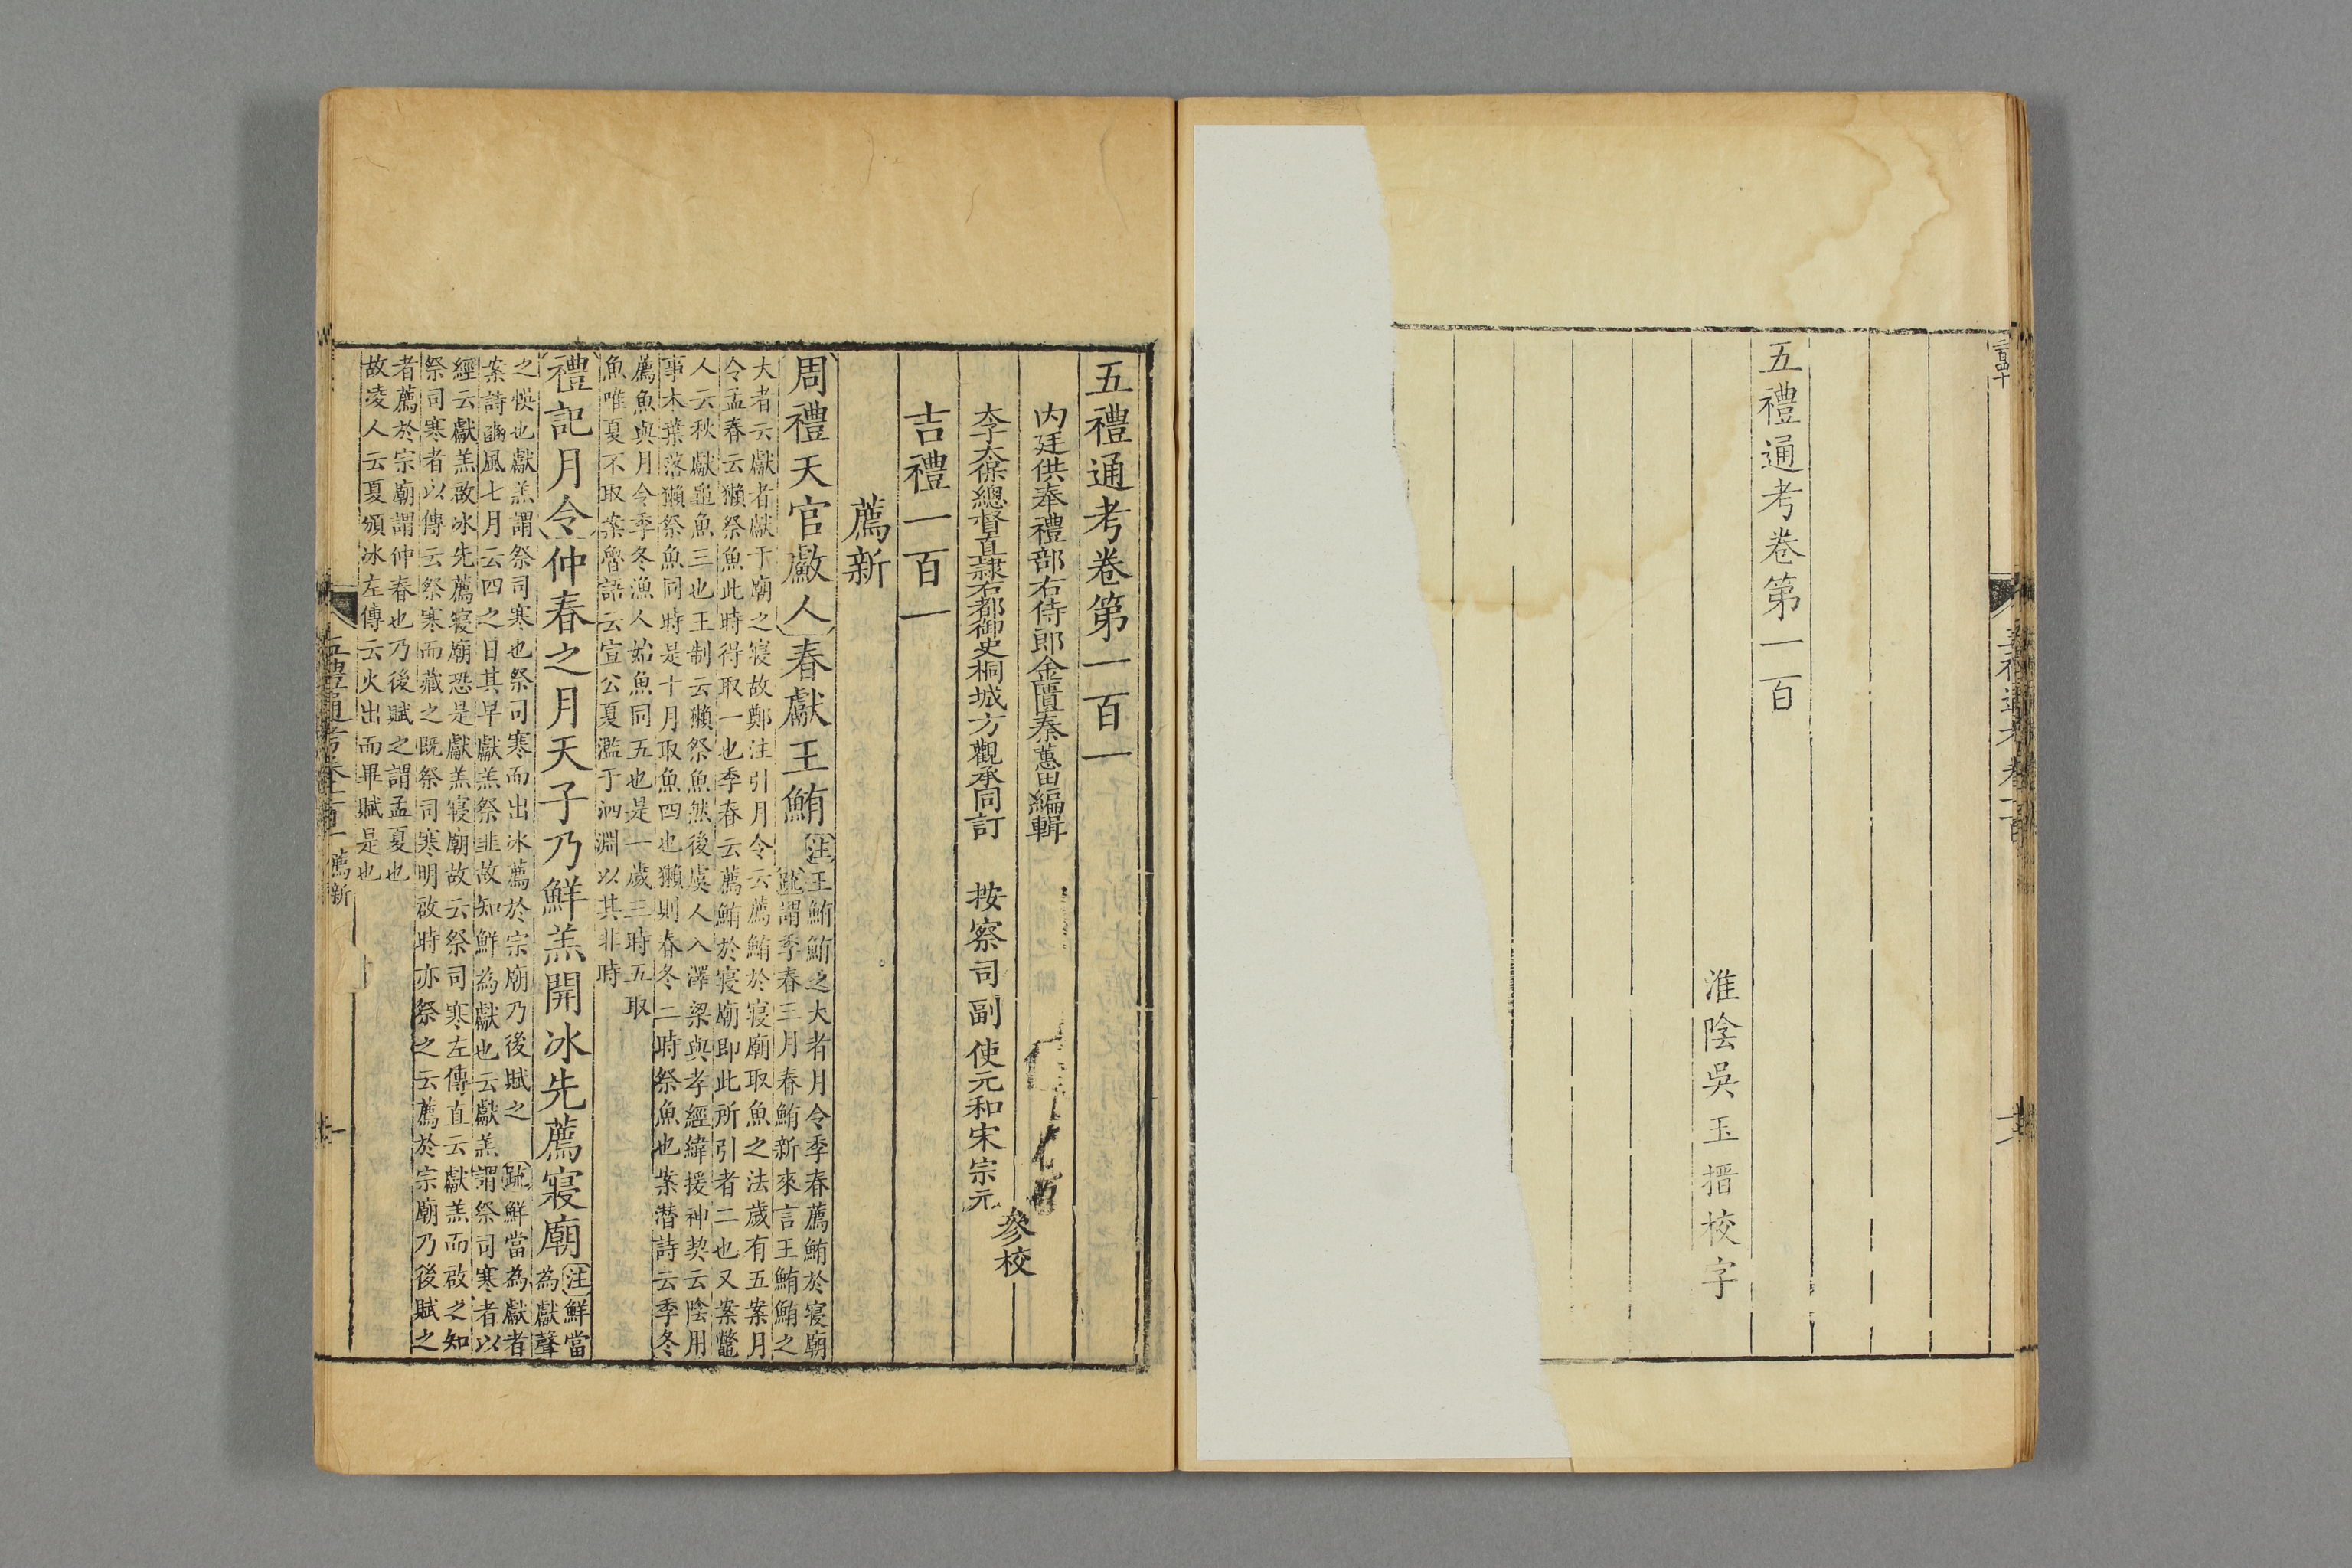 五禮通考卷第一百
淮陰吳玉搢校字
五禮通考卷第一百一
内廷供奉禮部右侍郎金匱秦蕙田編輯
太子太保總督直隸右都御史桐城方觀承同訂 按察司副使元和宋宗元
參校
吉禮一百一
薦新
周禮天官䱷人春獻王鮪注王鮪鮪之大者月令季春薦鮪於寢廟
疏謂季春三月春鮪新來言王鮪鮪之
大者云獻者獻于廟之寢故鄭注引月令云薦鮪於寢廟取魚之法歲有五案月
令孟春云獺祭魚此時得取一也季春云薦鮪於寢廟即此所引者二也又案鼈
人云秋獻龜魚三也王制云獺祭魚然後虞人入澤梁與孝經緯援神契云陰用
事木葉落獺祭魚同時是十月取魚四也獺則春冬二時祭魚也案潛詩云季冬
薦魚與月令季冬漁人始魚同五也是一歲三時五取
魚唯夏不取案魯語云宣公夏濫于泗淵以其非時
禮記月令仲春之月天子乃鮮羔開冰先薦寢廟注鮮當
為獻聲
之悞也獻羔謂祭司寒也祭司寒而出冰薦於宗廟乃後賦之 疏鮮當為獻者
案詩豳風七月云四之日其早獻羔祭韭故知鮮為獻也云獻羔謂祭司寒者以
經云獻羔啟冰先薦寢廟恐是獻羔寢廟故云祭司寒左傳直云獻羔而啟之知
祭司寒者以傳云祭寒而藏之既祭司寒明啟時亦祭之云薦於宗廟乃後賦之
者薦於宗廟謂仲春也乃後賦之謂孟夏也
故凌人云夏頒冰左傳云火出而畢賦是也
五禮通考卷一百一 薦新